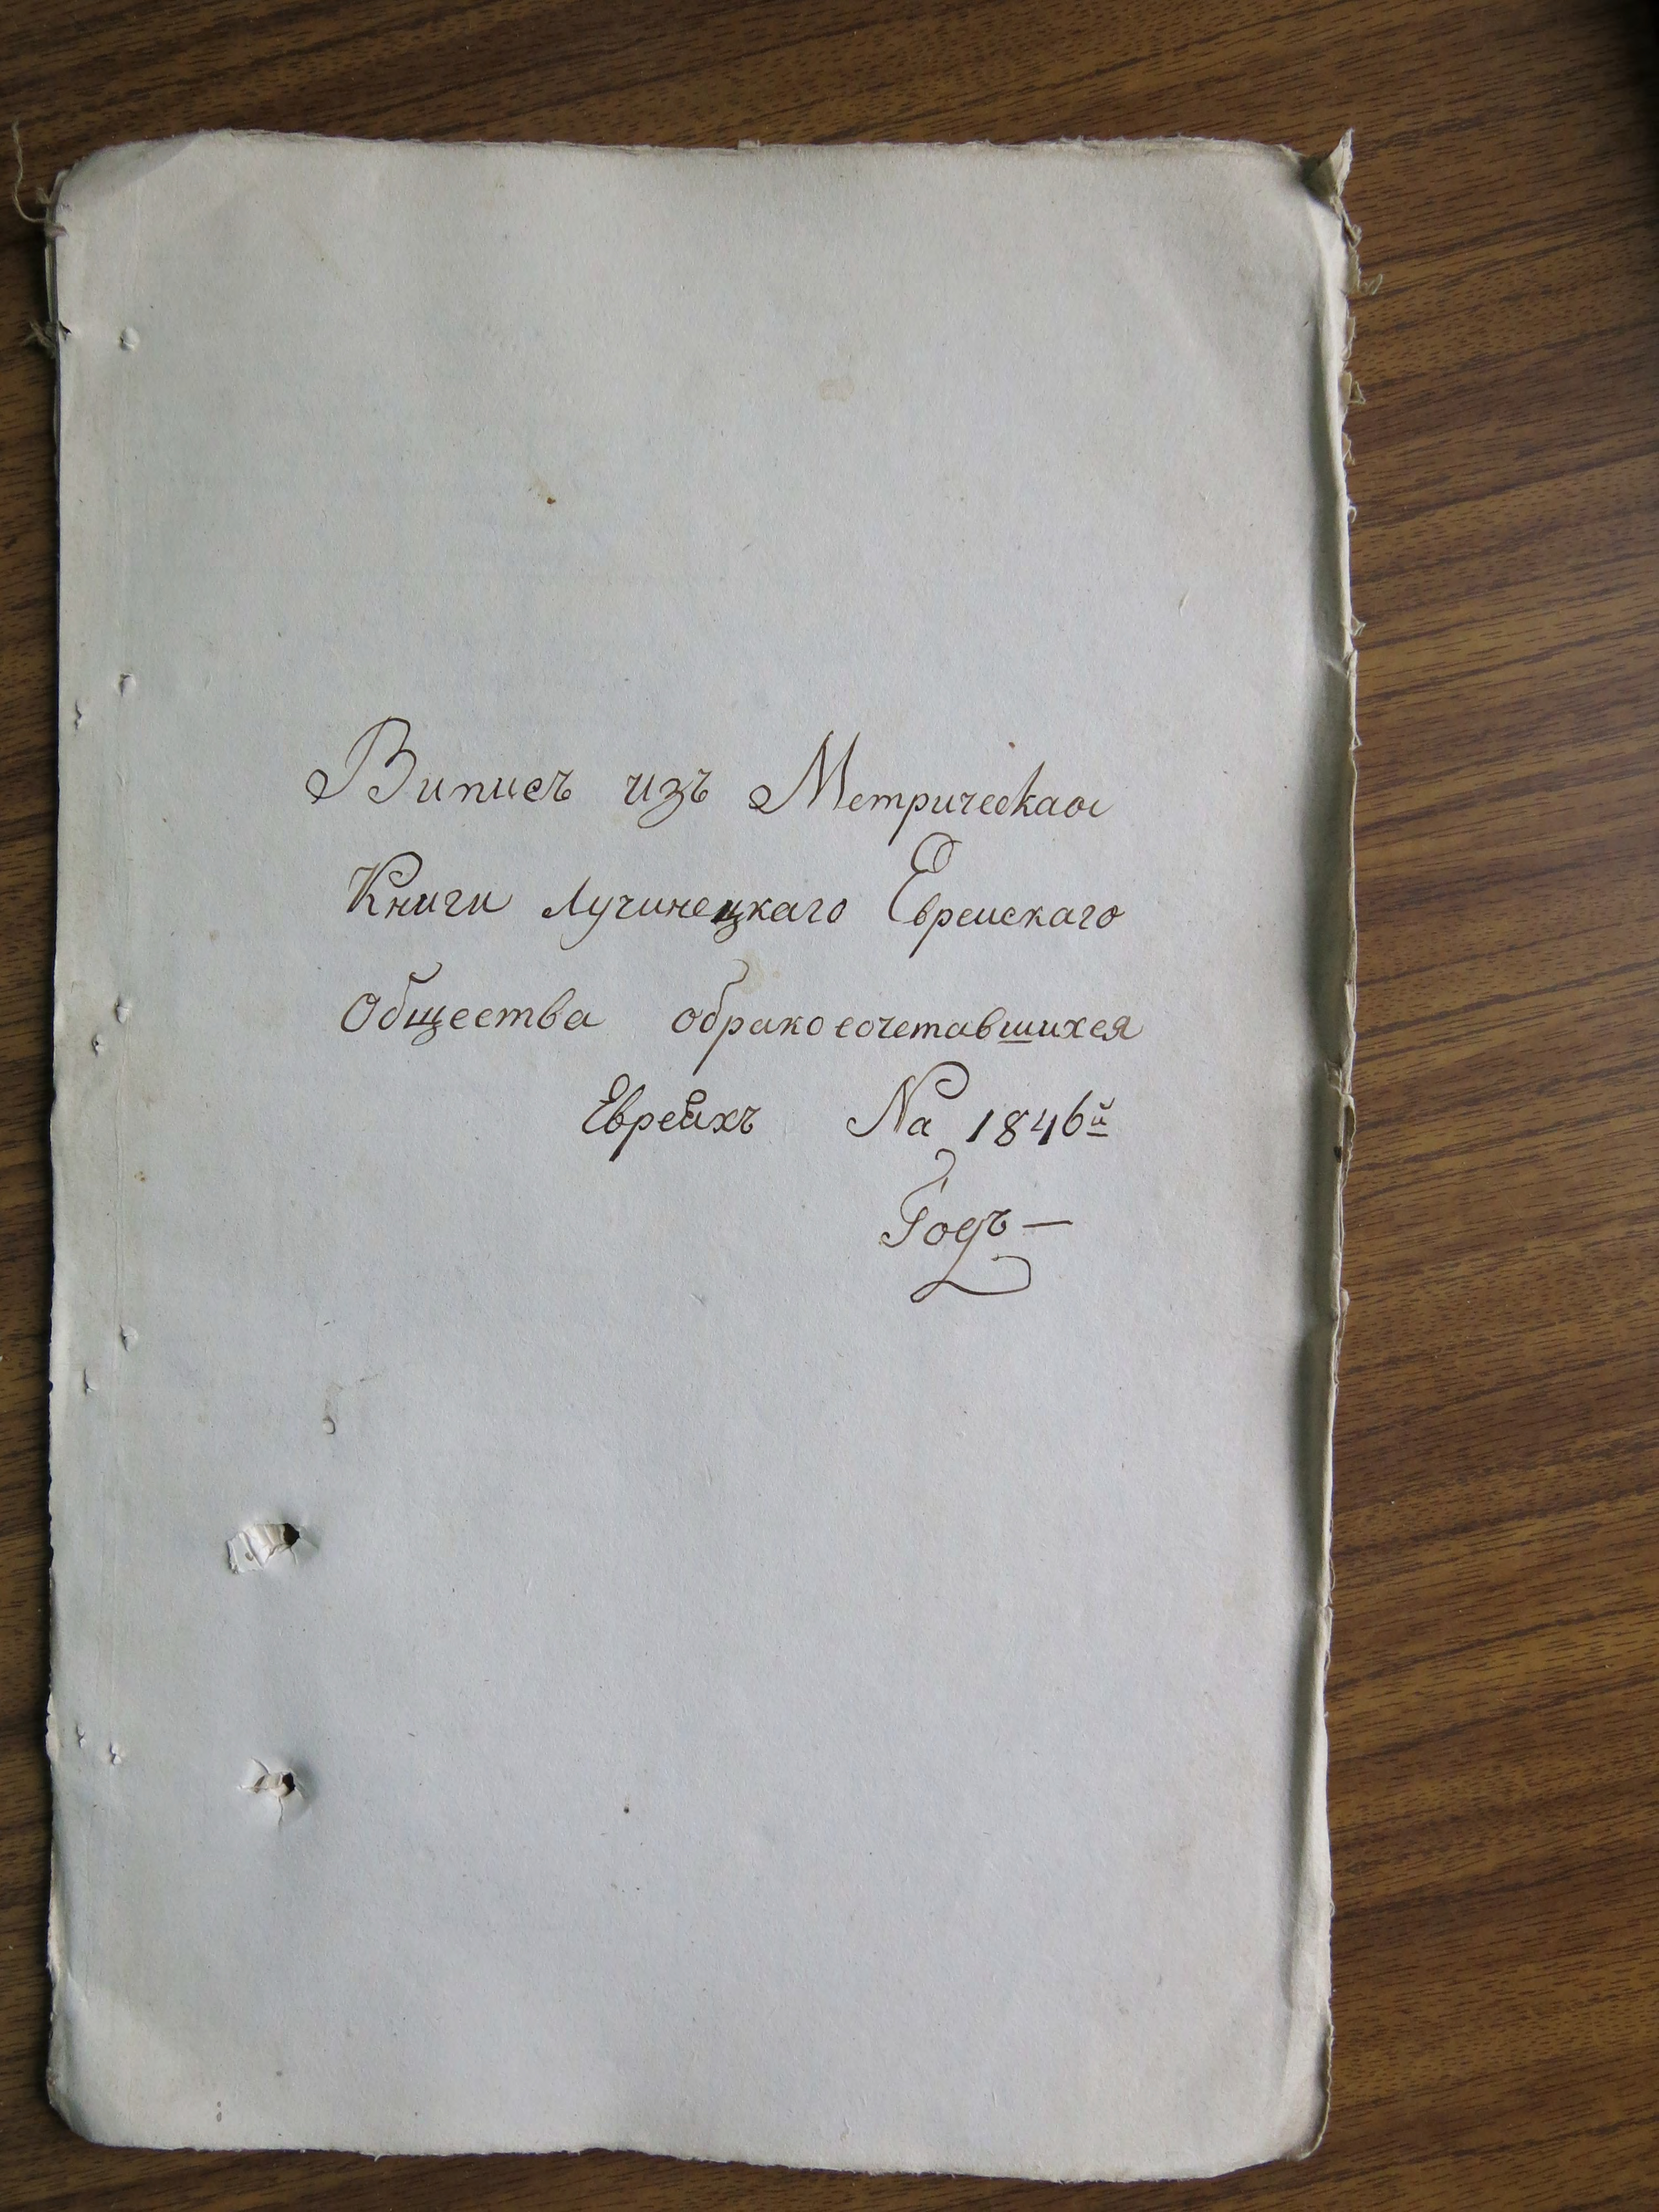 Випись изъ Метрическаои
Книги Лучинецкаго Евреискаго
Общества обракосочетавшихся
Евреихъ На 1846й
Годъ —